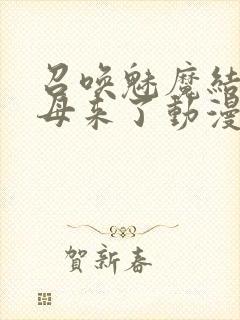 召喚魅魔結
母来了動漫
賀新春